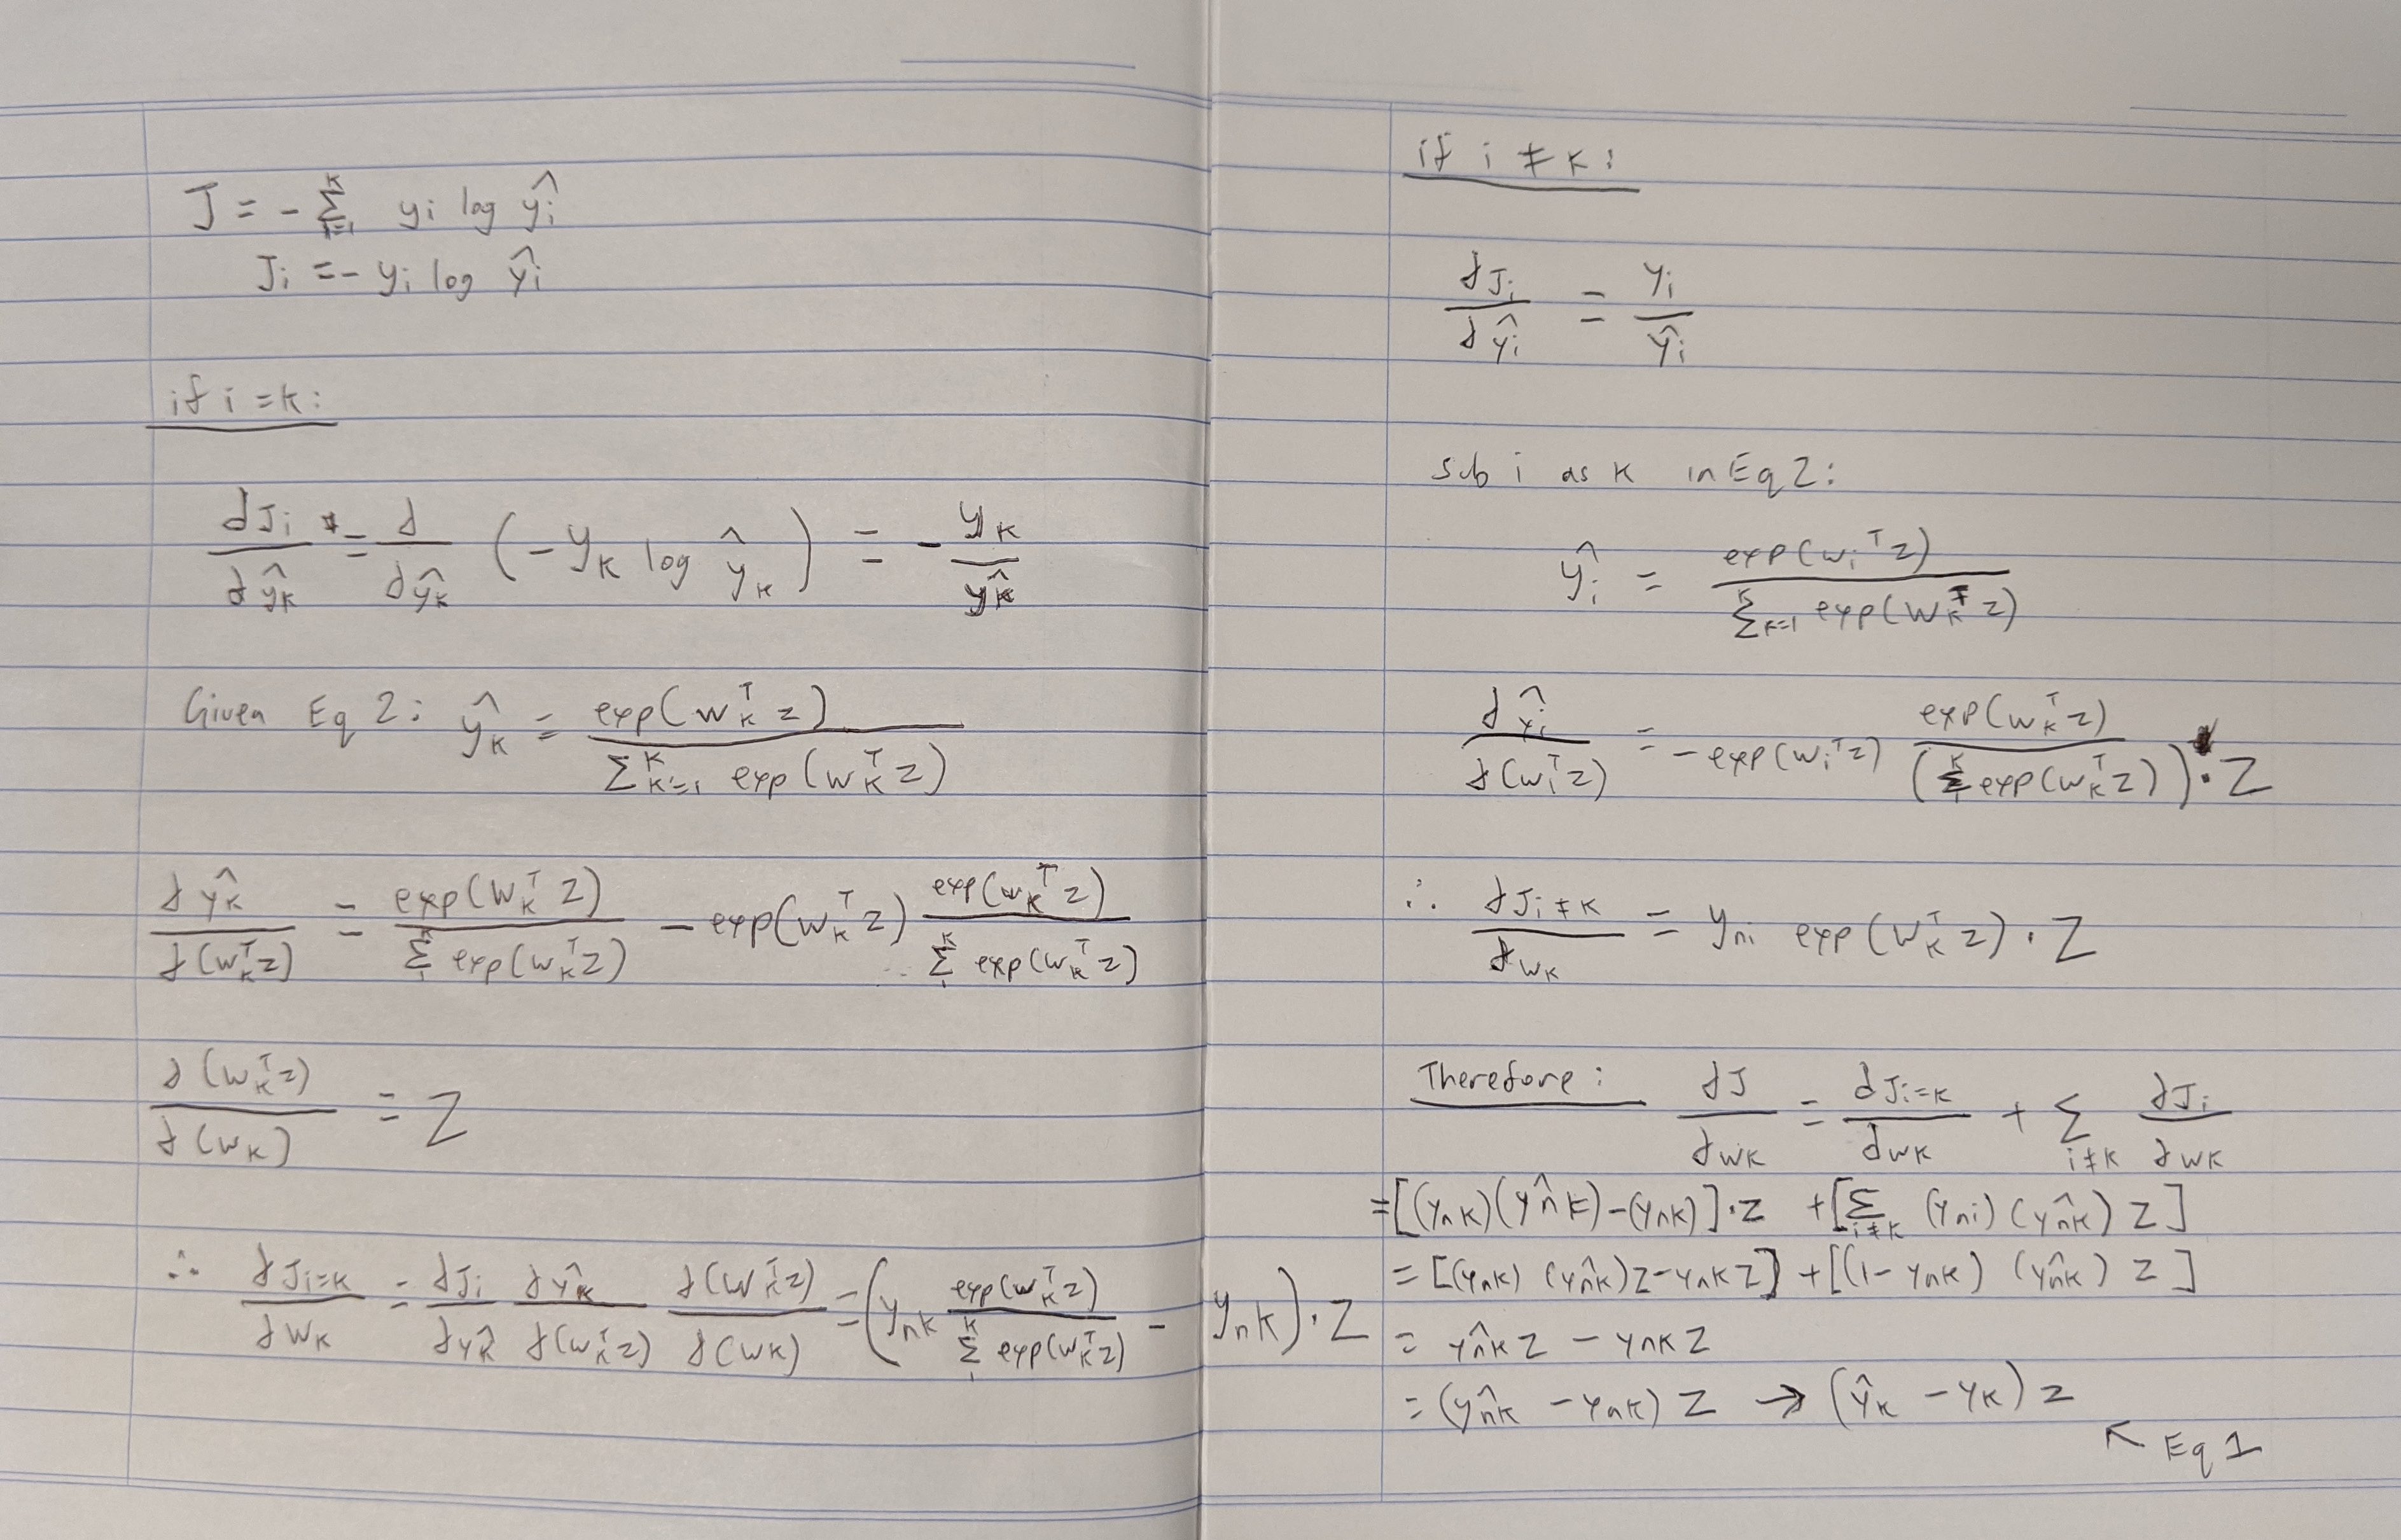 J = - Σ_{i=1}^{K} yi log ŷi
Ji = - yi log ŷi
if i = k:
dJi/dŷk = d/dŷk (-yk log ŷk) = - yk/ŷk
Given Eq 2: ŷk = exp(wk^T z) / Σ_{k=1}^{K} exp(wk^T z)
dŷk/d(wk^T z) = exp(wk^T z) / Σ_1^K exp(wk^T z) - exp(wk^T z) exp(wk^T z) / Σ_1^K exp(wk^T z)
d(wk^T z)/d(wk) = z
∴ dJi=k/dwk = dJi/dŷk dŷk/d(wk^T z) d(wk^T z)/d(wk) = (ynk exp(wk^T z) / Σ_1^K exp(wk^T z) - ynk) · z
if i ≠ k:
dJi/dŷi = yi/ŷi
sub i as k in Eq 2:
ŷi = exp(wi^T z) / Σ_{k=1}^{K} exp(wk^T z)
dŷi/d(wi^T z) = - exp(wi^T z) exp(wk^T z) / (Σ_1^K exp(wk^T z)) · z
∴ dJi≠k/dwk = yni exp(wk^T z) · z
Therefore: dJ/dwk = dJi=k/dwk + Σ_{i≠k} dJi/dwk
= [(ynk)(ŷnk) - (ynk)] · z + [Σ_{i≠k} (yni) (ŷnk) z]
= [(ynk) (ŷnk) z - ynk z] + [(1 - ynk) (ŷnk) z]
= ŷnk z - ynk z
= (ŷnk - ynk) z → (ŷk - yk) z
↖ Eq 1